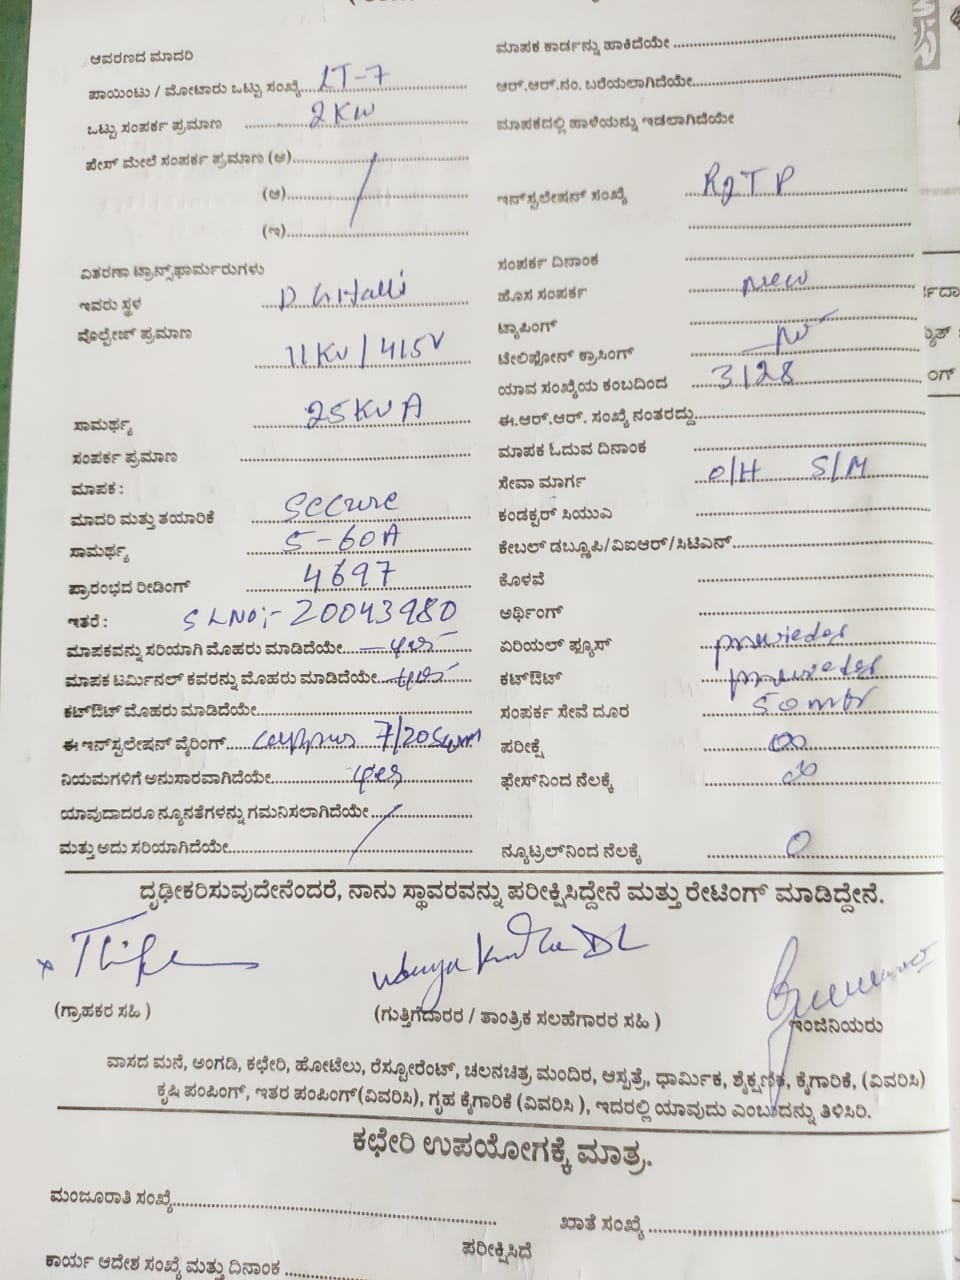 ಆವರಣದ ಮಾದರಿ
ಪಾಯಿಂಟು / ಮೋಟಾರು ಒಟ್ಟು ಸಂಖ್ಯೆ LT-7
ಒಟ್ಟು ಸಂಪರ್ಕ ಪ್ರಮಾಣ 2KW
ಫೇಸ್ ಮೇಲೆ ಸಂಪರ್ಕ ಪ್ರಮಾಣ (ಅ)
(ಆ)
(ಇ)
ವಿತರಣಾ ಟ್ರಾನ್ಸ್‌ಫಾರ್ಮರುಗಳು
ಇವರು ಸ್ಥಳ
ವೊಲ್ಟೇಜ್ ಪ್ರಮಾಣ
11KV / 415V
ಸಾಮರ್ಥ್ಯ 25KVA
ಸಂಪರ್ಕ ಪ್ರಮಾಣ
ಮಾಪಕ :
ಮಾದರಿ ಮತ್ತು ತಯಾರಿಕೆ Secure
ಸಾಮರ್ಥ್ಯ 5-60A
ಪ್ರಾರಂಭದ ರೀಡಿಂಗ್ 4697
ಇತರೆ : SLNO:- 20043980
ಮಾಪಕವನ್ನು ಸರಿಯಾಗಿ ಮೊಹರು ಮಾಡಿದೆಯೇ yes
ಮಾಪಕ ಟರ್ಮಿನಲ್ ಕವರನ್ನು ಮೊಹರು ಮಾಡಿದೆಯೇ yes
ಕಟ್‌ಔಟ್ ಮೊಹರು ಮಾಡಿದೆಯೇ
ಈ ಇನ್‌ಸ್ಟಲೇಷನ್ ವೈರಿಂಗ್ 7/20SWM
ನಿಯಮಗಳಿಗೆ ಅನುಸಾರವಾಗಿದೆಯೇ yes
ಯಾವುದಾದರೂ ನ್ಯೂನತೆಗಳನ್ನು ಗಮನಿಸಲಾಗಿದೆಯೇ
ಮತ್ತು ಅದು ಸರಿಯಾಗಿದೆಯೇ
ಮಾಪಕ ಕಾರ್ಡನ್ನು ಹಾಕಿದೆಯೇ
ಆರ್.ಆರ್.ನಂ. ಬರೆಯಲಾಗಿದೆಯೇ
ಮಾಪಕದಲ್ಲಿ ಹಾಳೆಯನ್ನು ಇಡಲಾಗಿದೆಯೇ
ಇನ್‌ಸ್ಟಲೇಷನ್ ಸಂಖ್ಯೆ
ಸಂಪರ್ಕ ದಿನಾಂಕ
ಹೊಸ ಸಂಪರ್ಕ New
ಟ್ಯಾಪಿಂಗ್
ಟೇಲಿಫೋನ್ ಕ್ರಾಸಿಂಗ್ No
ಯಾವ ಸಂಖ್ಯೆಯ ಕಂಬದಿಂದ 3/28
ಈ.ಆರ್.ಆರ್. ಸಂಖ್ಯೆ ನಂತರದ್ದು
ಮಾಪಕ ಓದುವ ದಿನಾಂಕ
ಸೇವಾ ಮಾರ್ಗ O/H S/M
ಕಂಡಕ್ಟರ್ ಸಿಯುಎ
ಕೇಬಲ್ ಡಬ್ಲೂಪಿ/ವಿಐಆರ್/ಸಿಟಿಎನ್
ಕೊಳವೆ
ಅರ್ಥಿಂಗ್
ಏರಿಯಲ್ ಫ್ಯೂಸ್
ಕಟ್‌ಔಟ್
ಸಂಪರ್ಕ ಸೇವೆ ದೂರ 50 mtr
ಪರೀಕ್ಷೆ ∞
ಫೇಸ್‌ನಿಂದ ನೆಲಕ್ಕೆ ∞
ನ್ಯೂಟ್ರಲ್‌ನಿಂದ ನೆಲಕ್ಕೆ 0
ದೃಢೀಕರಿಸುವುದೇನೆಂದರೆ, ನಾನು ಸ್ಥಾವರವನ್ನು ಪರೀಕ್ಷಿಸಿದ್ದೇನೆ ಮತ್ತು ರೇಟಿಂಗ್ ಮಾಡಿದ್ದೇನೆ.
(ಗ್ರಾಹಕರ ಸಹಿ )
(ಗುತ್ತಿಗೆದಾರರ / ತಾಂತ್ರಿಕ ಸಲಹೆಗಾರರ ಸಹಿ )
ಇಂಜಿನಿಯರು
ವಾಸದ ಮನೆ, ಅಂಗಡಿ, ಕಛೇರಿ, ಹೋಟೆಲು, ರೆಸ್ಟೋರೆಂಟ್, ಚಲನಚಿತ್ರ ಮಂದಿರ, ಆಸ್ಪತ್ರೆ, ಧಾರ್ಮಿಕ, ಶೈಕ್ಷಣಿಕ, ಕೈಗಾರಿಕೆ, (ವಿವರಿಸಿ)
ಕೃಷಿ ಪಂಪಿಂಗ್, ಇತರ ಪಂಪಿಂಗ್(ವಿವರಿಸಿ), ಗೃಹ ಕೈಗಾರಿಕೆ (ವಿವರಿಸಿ ), ಇದರಲ್ಲಿ ಯಾವುದು ಎಂಬುದನ್ನು ತಿಳಿಸಿರಿ.
ಕಛೇರಿ ಉಪಯೋಗಕ್ಕೆ ಮಾತ್ರ.
ಮಂಜೂರಾತಿ ಸಂಖ್ಯೆ
ಖಾತೆ ಸಂಖ್ಯೆ
ಪರೀಕ್ಷಿಸಿದೆ
ಕಾರ್ಯ ಆದೇಶ ಸಂಖ್ಯೆ ಮತ್ತು ದಿನಾಂಕ